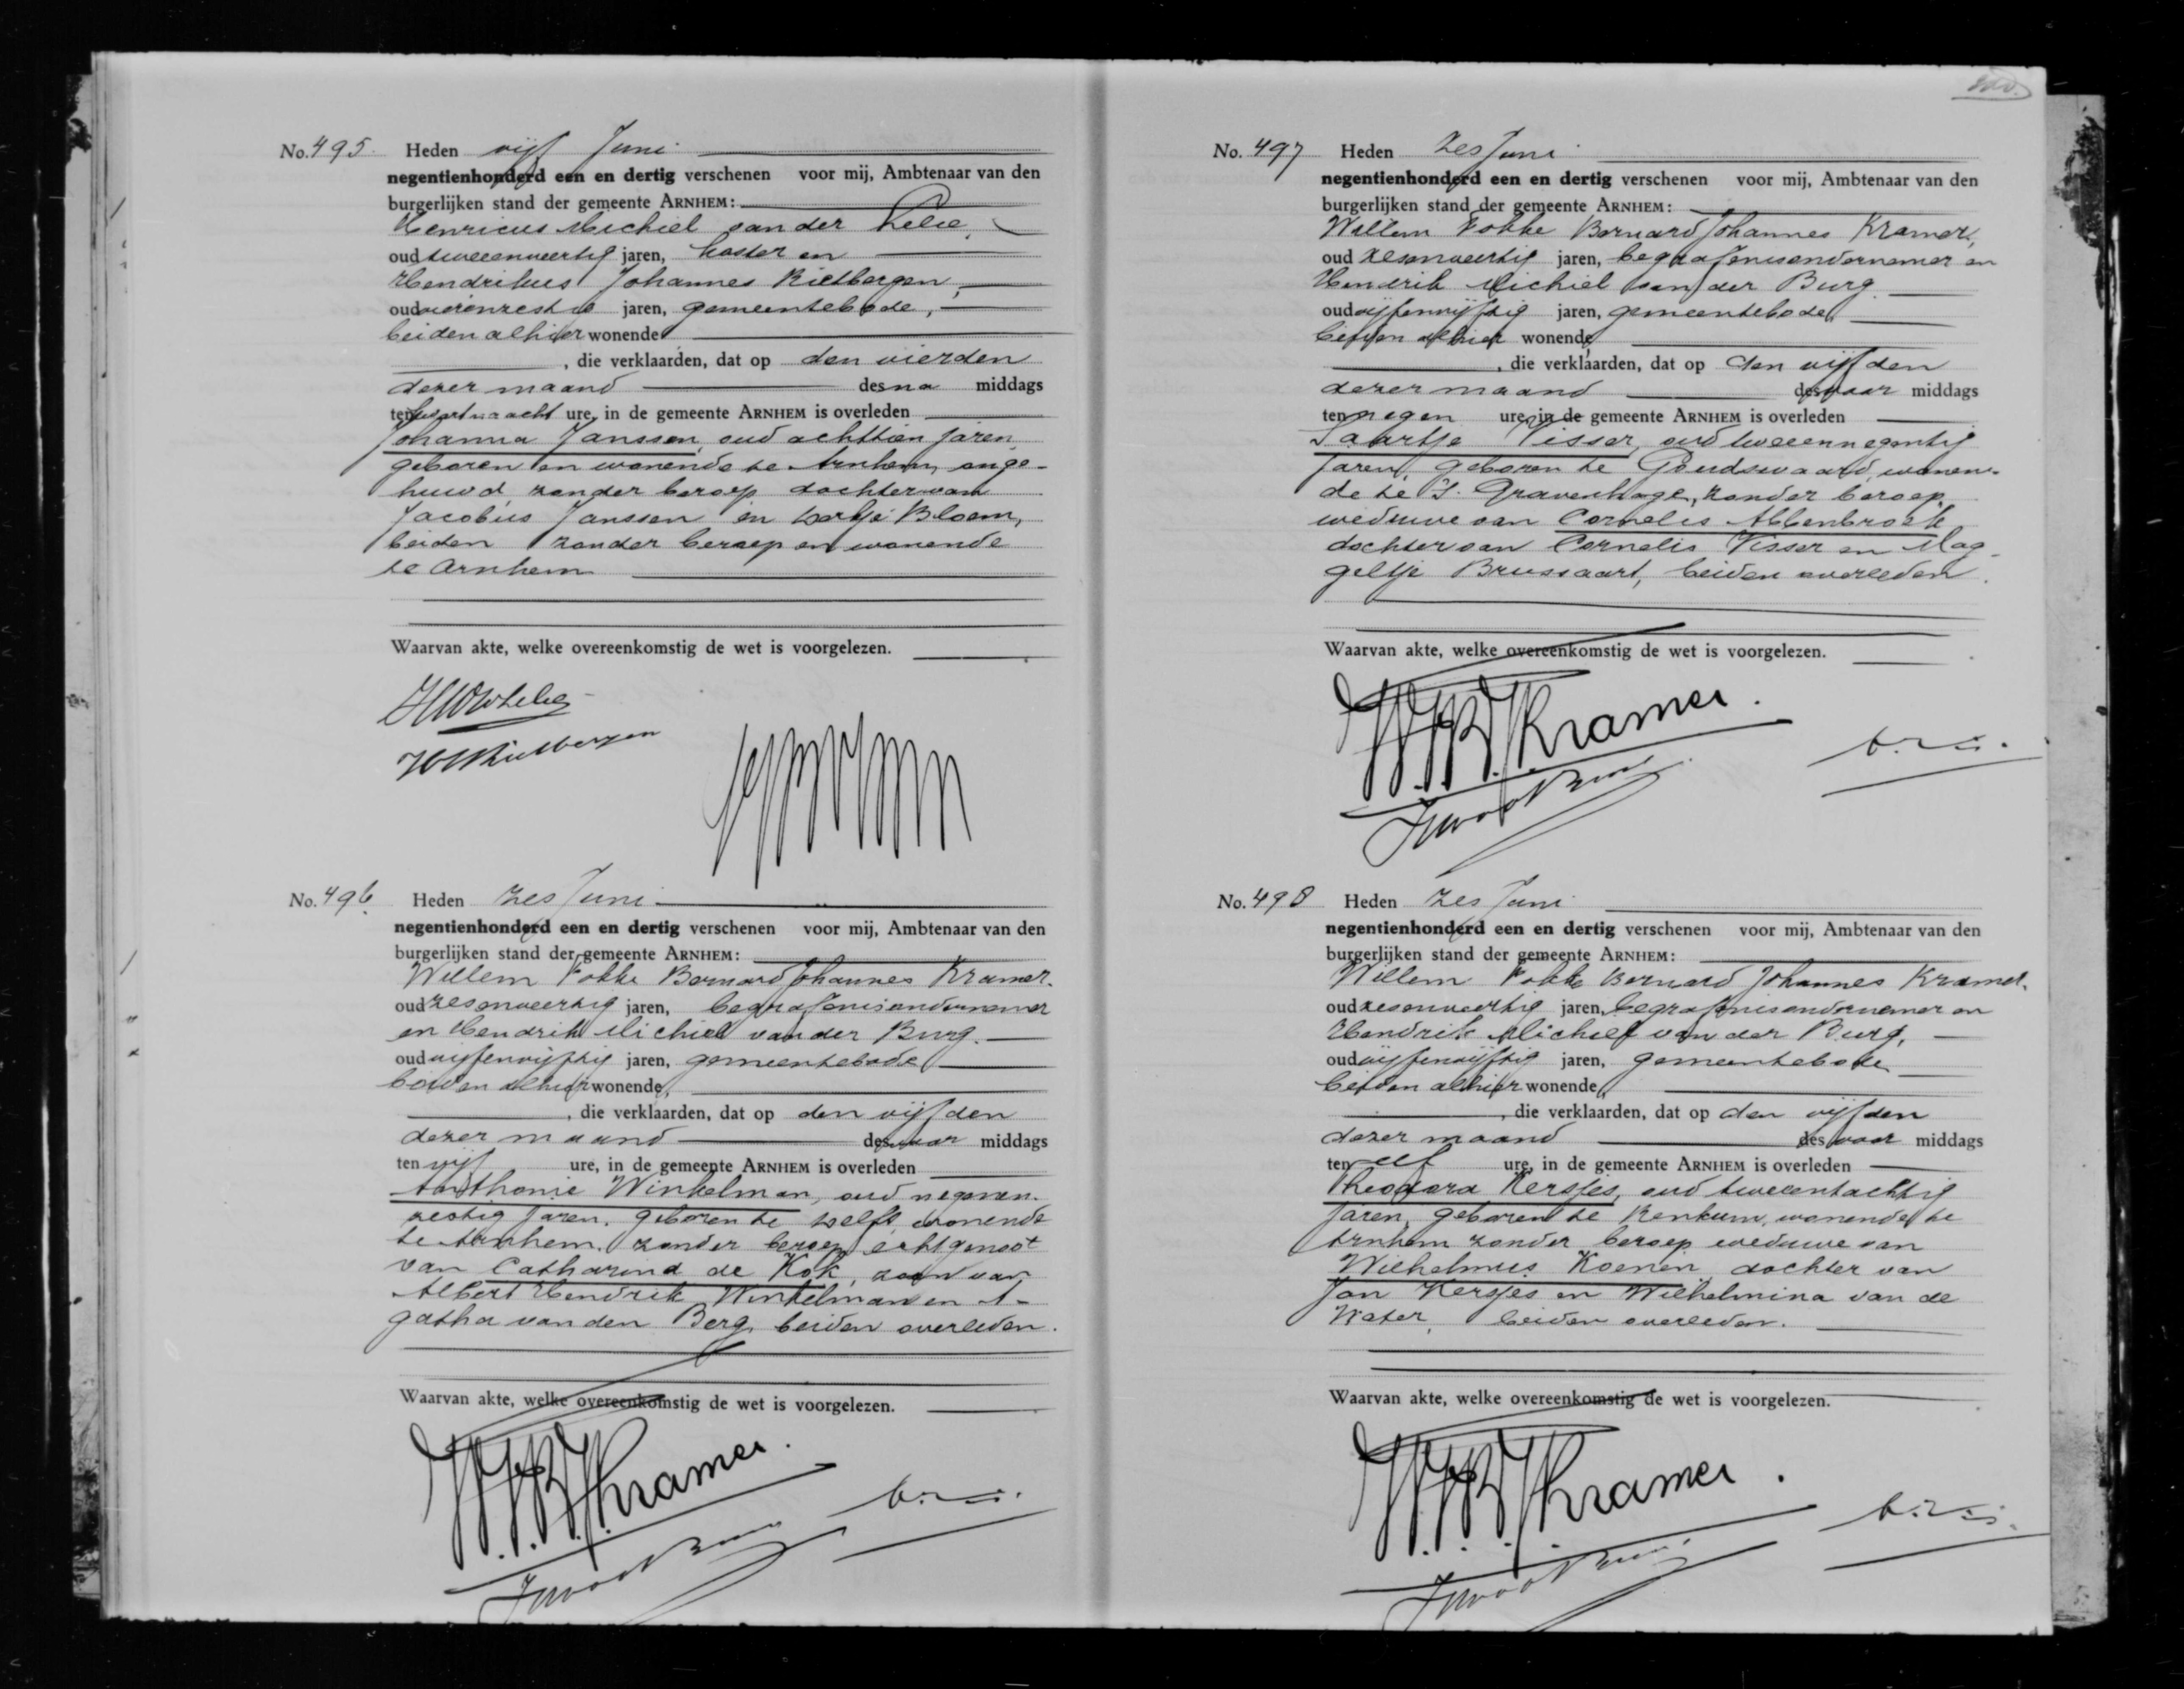 No. 495. Heden vijf Juni
negentienhonderd een en dertig verschenen voor mij, Ambtenaar van den
burgerlijken stand der gemeente ARNHEM:
Henricus Michiel van der Lelie,
oud tweeenveertig jaren, koster en
Hendrikus Johannes Rietbergen,
oud vierenzestig jaren, gemeentebode,
beiden alhier wonende
, die verklaarden, dat op den vierden
dezer maand des na middags
ten kwart na acht ure, in de gemeente ARNHEM is overleden
Johanna Janssen, oud achttien jaren,
geboren en wonende te Arnhem, onge-
huwd, zonder beroep, dochter van
Jacobus Janssen en Bloem,
beiden zonder beroep en wonende
te Arnhem
Waarvan akte, welke overeenkomstig de wet is voorgelezen.
HJRietbergen
No. 496. Heden zes Juni
negentienhonderd een en dertig verschenen voor mij, Ambtenaar van den
burgerlijken stand der gemeente ARNHEM:
Willem Fokke Bernard Johannes Kramer,
oud zesenveertig jaren, begrafenisondernemer
en Hendrik Michiel van der Burg,
oud vijfenvijftig jaren, gemeentebode
beiden alhier wonende,
, die verklaarden, dat op den vijfden
dezer maand des voor middags
ten vijf ure, in de gemeente ARNHEM is overleden
Anthonie Winkelman, oud negenen-
zestig jaren, geboren te Delft, wonende
te Arnhem, zonder beroep, echtgenoot
van Catharina de Kok, zoon van
Albert Hendrik Winkelman en A-
gatha van den Berg, beiden overleden.
Waarvan akte, welke overeenkomstig de wet is voorgelezen.
W.F.B.J. Kramer.
HMvdBurg
No. 497 Heden zes Juni
negentienhonderd een en dertig verschenen voor mij, Ambtenaar van den
burgerlijken stand der gemeente ARNHEM:
Willem Fokke Bernard Johannes Kramer,
oud zesenveertig jaren, begrafenisondernemer en
Hendrik Michiel van der Burg
oud vijfenvijftig jaren, gemeentebode,
beiden alhier wonende,
, die verklaarden, dat op den vijfden
dezer maand des voor middags
ten negen ure, in de gemeente ARNHEM is overleden
Saartje Visser, oud tweeennegentig
jaren, geboren te Goudswaard, wonen-
de te 's Gravenhage, zonder beroep,
weduwe van Cornelis Abbenbroek
dochter van Cornelis Visser en Mag-
geltje Brussaart, beiden overleden.
Waarvan akte, welke overeenkomstig de wet is voorgelezen.
W.F.B.J. Kramer.
HMvdBurg
No. 498 Heden zes Juni
negentienhonderd een en dertig verschenen voor mij, Ambtenaar van den
burgerlijken stand der gemeente ARNHEM:
Willem Fokke Bernard Johannes Kramer,
oud zesenveertig jaren, begrafenisondernemer en
Hendrik Michiel van der Burg,
oud vijfenvijftig jaren, gemeentebode
beiden alhier wonende,
, die verklaarden, dat op den vijfden
dezer maand des voor middags
ten elf ure, in de gemeente ARNHEM is overleden
Theodora Kersjes, oud tweeentachtig
jaren, geboren te Renkum, wonende te
Arnhem zonder beroep weduwe van
Wilhelmus Koenen, dochter van
Jan Kersjes en Wilhelmina van de
Water, beiden overleden.
Waarvan akte, welke overeenkomstig de wet is voorgelezen.
W.F.B.J. Kramer.
HMvdBurg